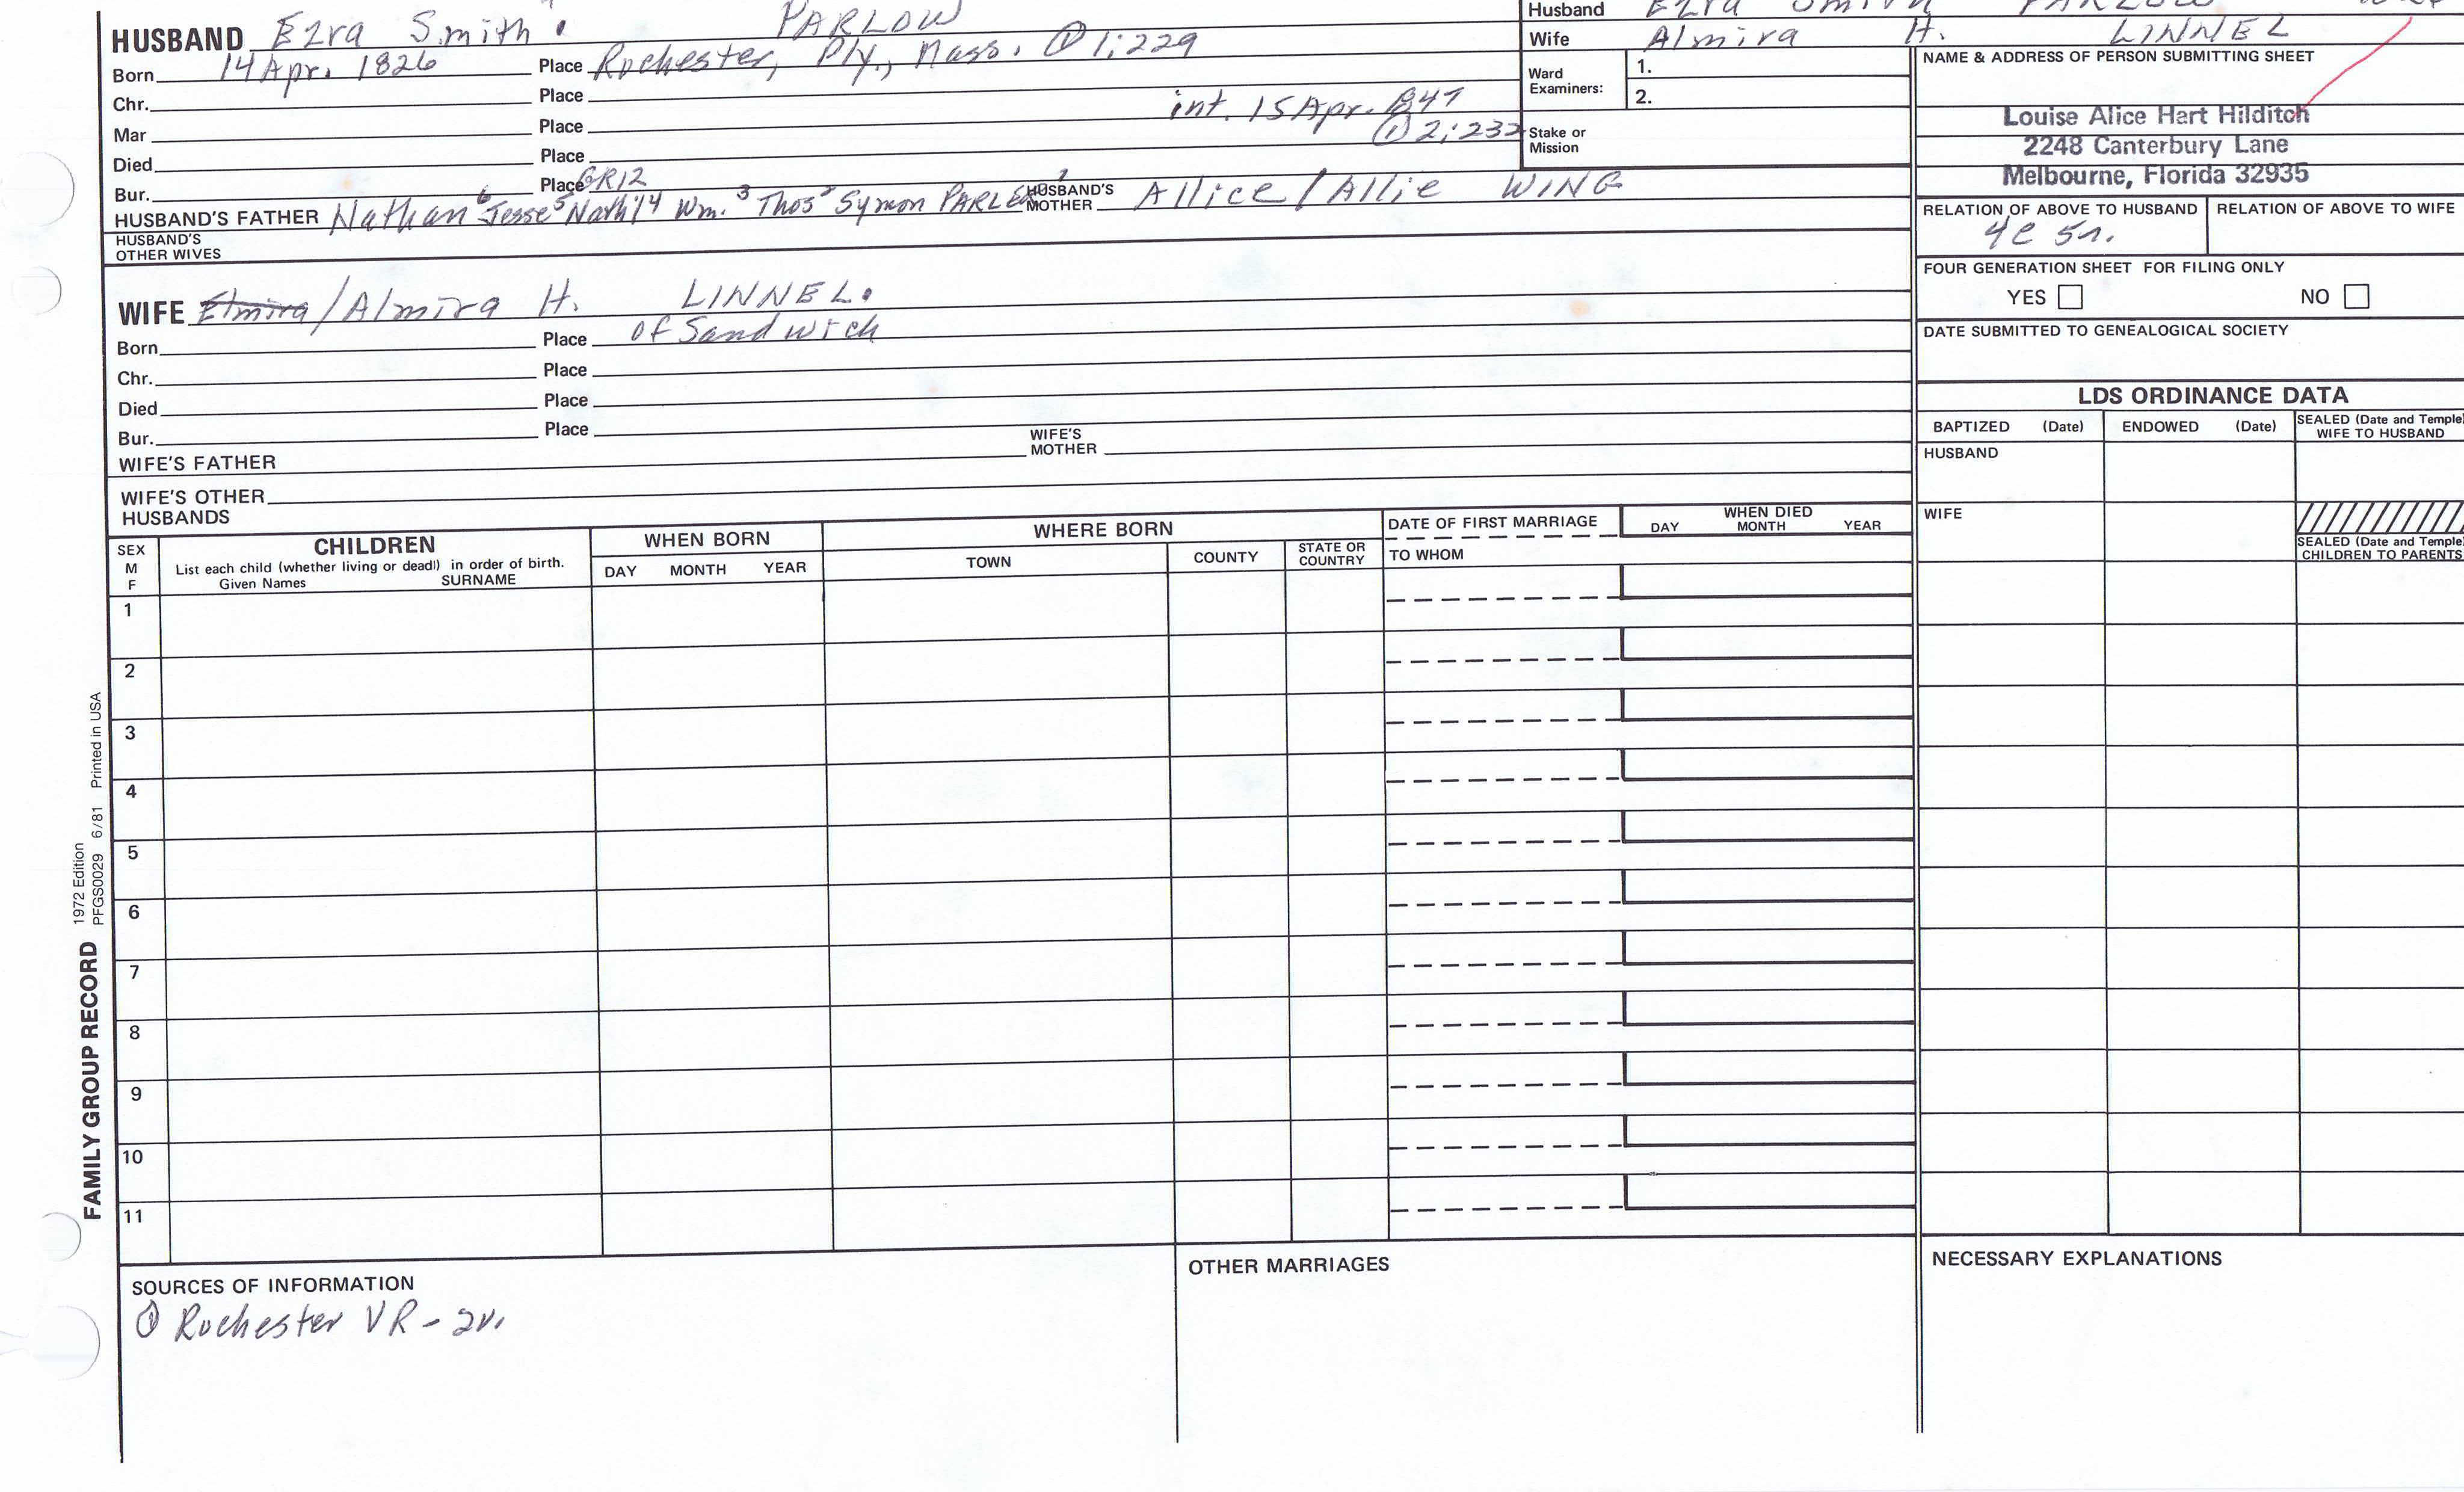 HUSBAND Ezra Smith PARLOW
Born 14 Apr. 1826 Place Rochester, Ply., Mass. ① 1:229
Chr. Place
Mar Place int. 15 Apr. 1847
① 2:232
Died Place
Bur. Place GR12
HUSBAND'S FATHER Nathan 6 Jesse 5 Nath'l 4 Wm. 3 Thos 2 Symon PARLER 1 HUSBAND'S MOTHER Allice/Allie WING
HUSBAND'S
OTHER WIVES
Husband Ezra Smith PARLOW
Wife Almira H. LINNEL
Ward
Examiners:
1.
2.
Stake or
Mission
NAME & ADDRESS OF PERSON SUBMITTING SHEET
Louise Alice Hart Hilditch
2248 Canterbury Lane
Melbourne, Florida 32935
RELATION OF ABOVE TO HUSBAND RELATION OF ABOVE TO WIFE
4c 5r.
FOUR GENERATION SHEET FOR FILING ONLY
YES NO
DATE SUBMITTED TO GENEALOGICAL SOCIETY
WIFE Elmira/Almira H. LINNEL.
Born Place of Sandwich
Chr. Place
Died Place
Bur. Place
WIFE'S FATHER WIFE'S MOTHER
WIFE'S OTHER
HUSBANDS
LDS ORDINANCE DATA
BAPTIZED (Date) ENDOWED (Date) SEALED (Date and Temple)
WIFE TO HUSBAND
HUSBAND
WIFE
SEALED (Date and Temple)
CHILDREN TO PARENTS
SEX
M
F
CHILDREN
List each child (whether living or dead) in order of birth.
Given Names SURNAME
WHEN BORN
DAY MONTH YEAR
WHERE BORN
TOWN COUNTY STATE OR
COUNTRY
DATE OF FIRST MARRIAGE
TO WHOM
WHEN DIED
DAY MONTH YEAR
1
2
3
4
5
6
7
8
9
10
11
FAMILY GROUP RECORD
1972 Edition
PFGS0029 6/81 Printed in USA
SOURCES OF INFORMATION
① Rochester VR - 2v.
OTHER MARRIAGES
NECESSARY EXPLANATIONS